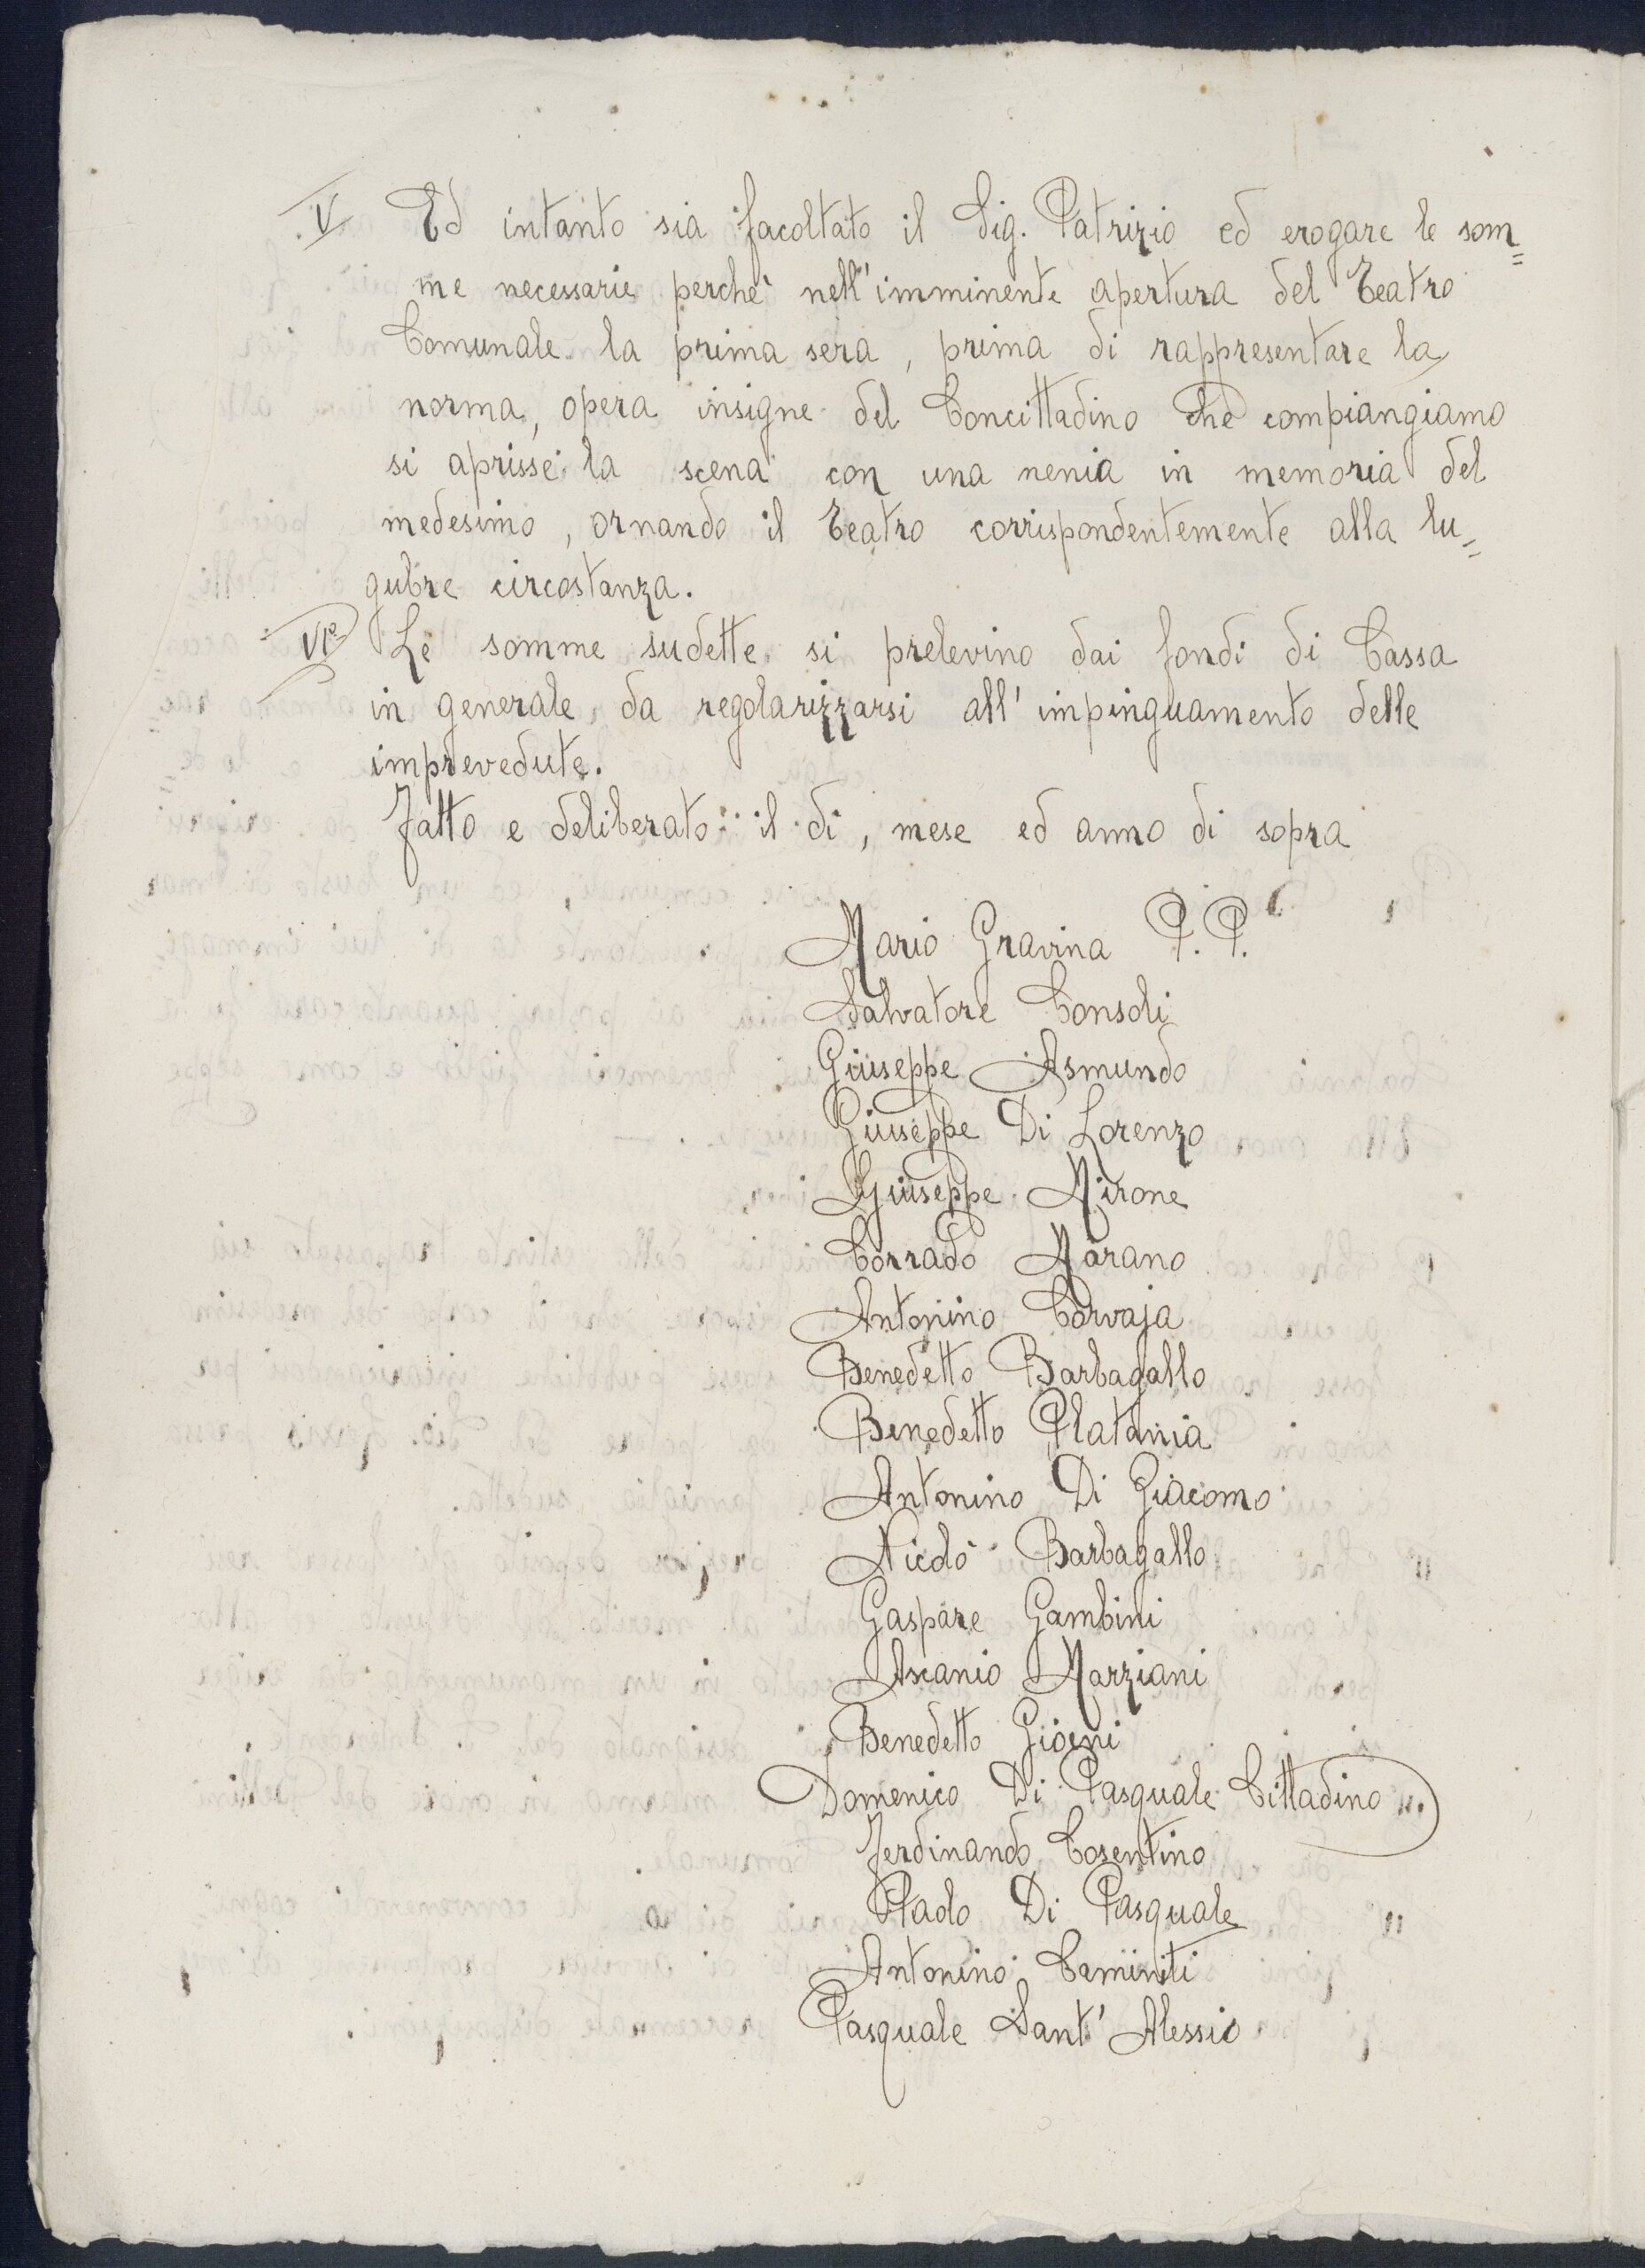 V Ed intanto sia facoltato il Sig. Patrizio ed erogare le som=
me necessarie perchè nell'imminente apertura del Teatro
Comunale la prima sera, prima di rappresentare la
norma, opera insigne del Concittadino che compiangiamo
si aprisse la scena con una nenia in memoria del
medesimo, ornando il Teatro corrispondentemente alla lu=
gubre circostanza.
VIº Le somme sudette si prelevino dai fondi di Cassa
in generale, da regolarizzarsi all'impinguamento delle
imprevedute.
Fatto e deliberato il dì, mese ed anno di sopra
Mario Gravina P. P.
Salvatore Consoli
Giuseppe Asmundo
Giuseppe Di Lorenzo
Giuseppe Mirone
Corrado Marano
Antonino Corvaja
Benedetto Barbagallo
Benedetto Platania
Antonino Di Giacomo
Nicolò Barbagallo
Gaspare Gambini
Ascanio Marziani
Benedetto Gioeni
Domenico Di Pasquale Cittadino
Ferdinando Cosentino
Paolo Di Pasquale
Antonino Caminiti
Pasquale Sant'Alessio